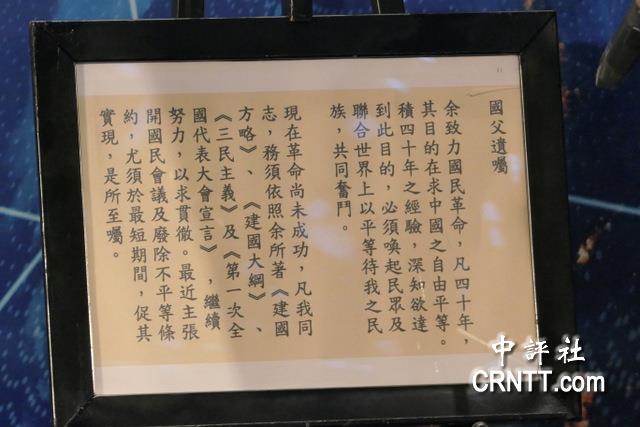 國父遺囑
余致力國民革命，凡四十年，
其目的在求中國之自由平等。
積四十年之經驗，深知欲達
到此目的，必須喚起民眾及
聯合世界上以平等待我之民
族，共同奮鬥。
現在革命尚未成功，凡我同
志，務須依照余所著《建國
方略》、《建國大綱》、
《三民主義》及《第一次全
國代表大會宣言》，繼續
努力，以求貫徹。最近主張
開國民會議及廢除不平等條
約，尤須於最短期間，促其
實現，是所至囑。
中評社
CRNTT.com